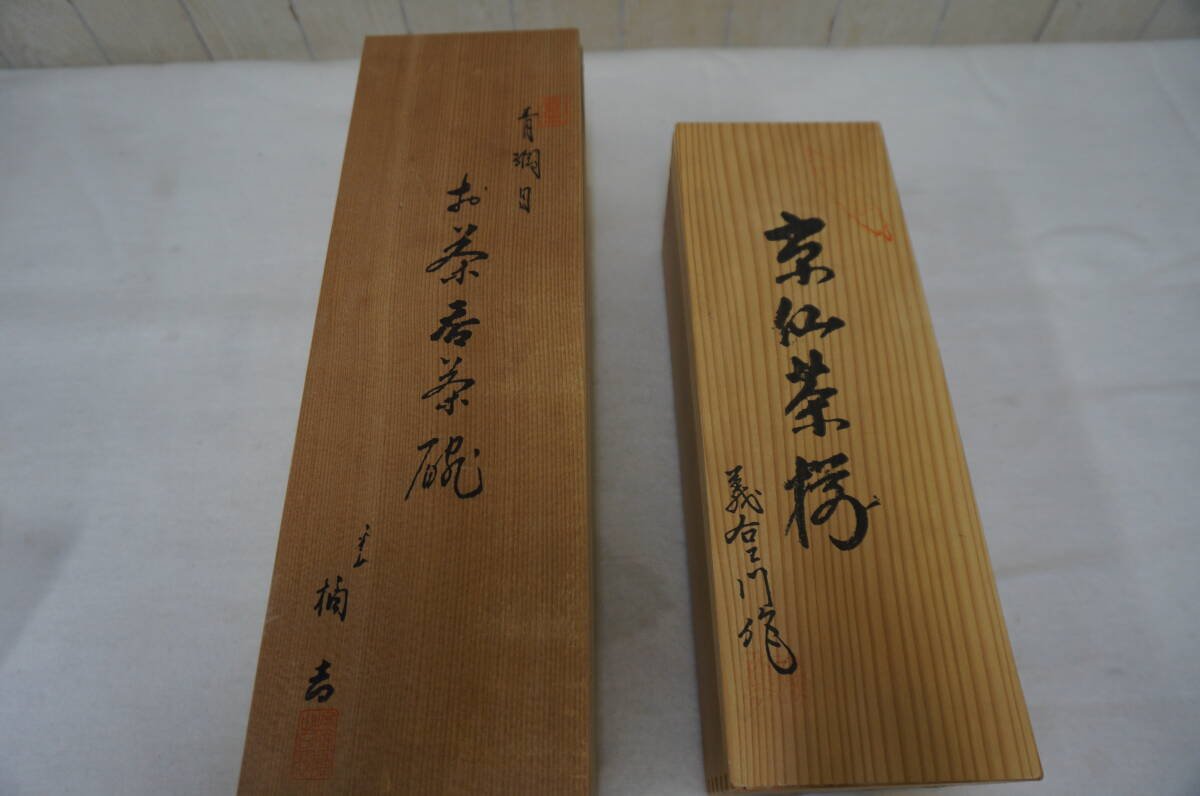 京仙茶揃
義右ヱ門作
青瓷目
お茶呑茶碗
楠吉